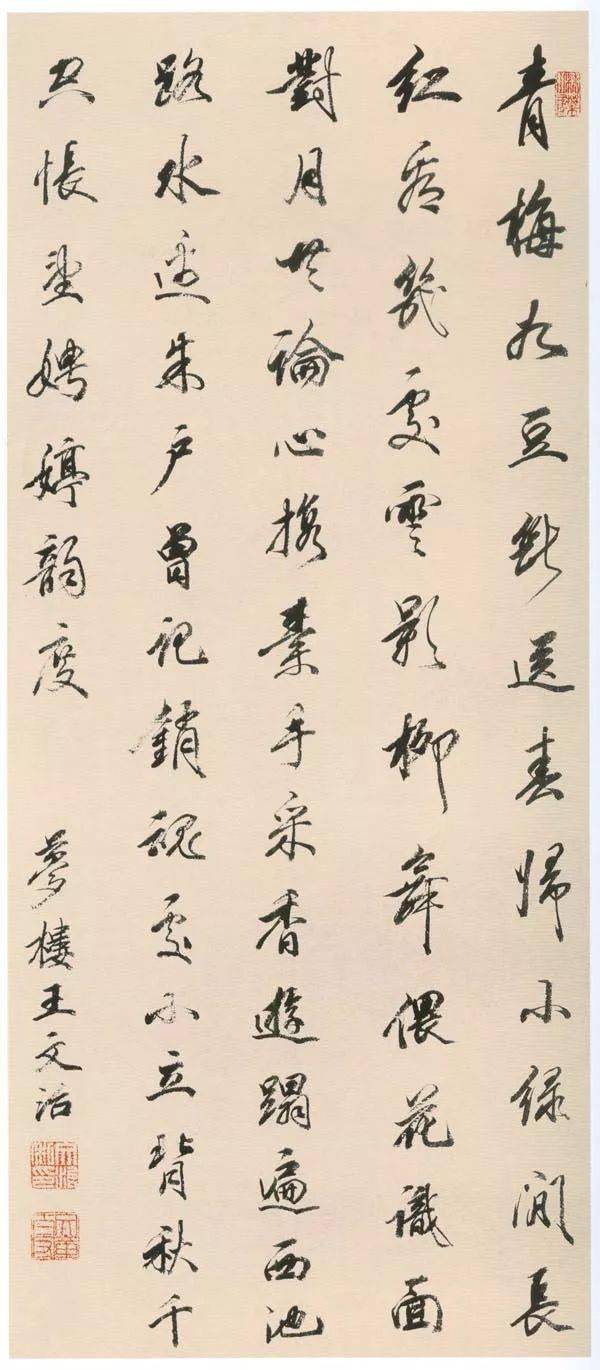 青梅如豆斷送春歸小綠間長
紅看幾處雲影柳舞偎花識面
對月共論心携素手采香遊蹋遍西池
路水邊朱戶曾記銷魂處小立背秋千
空悵望娉婷韻度
夢樓王文治